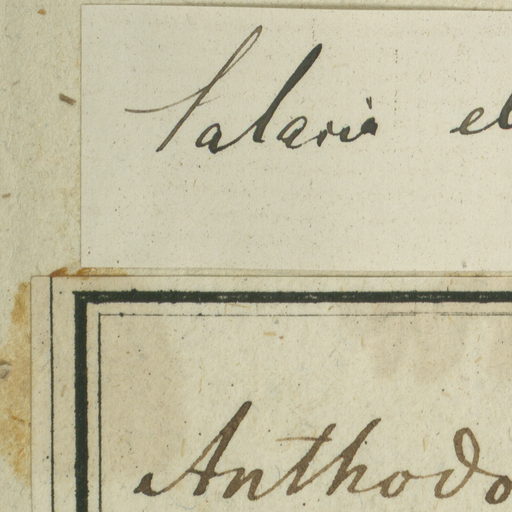 Salaria el
Anthodo